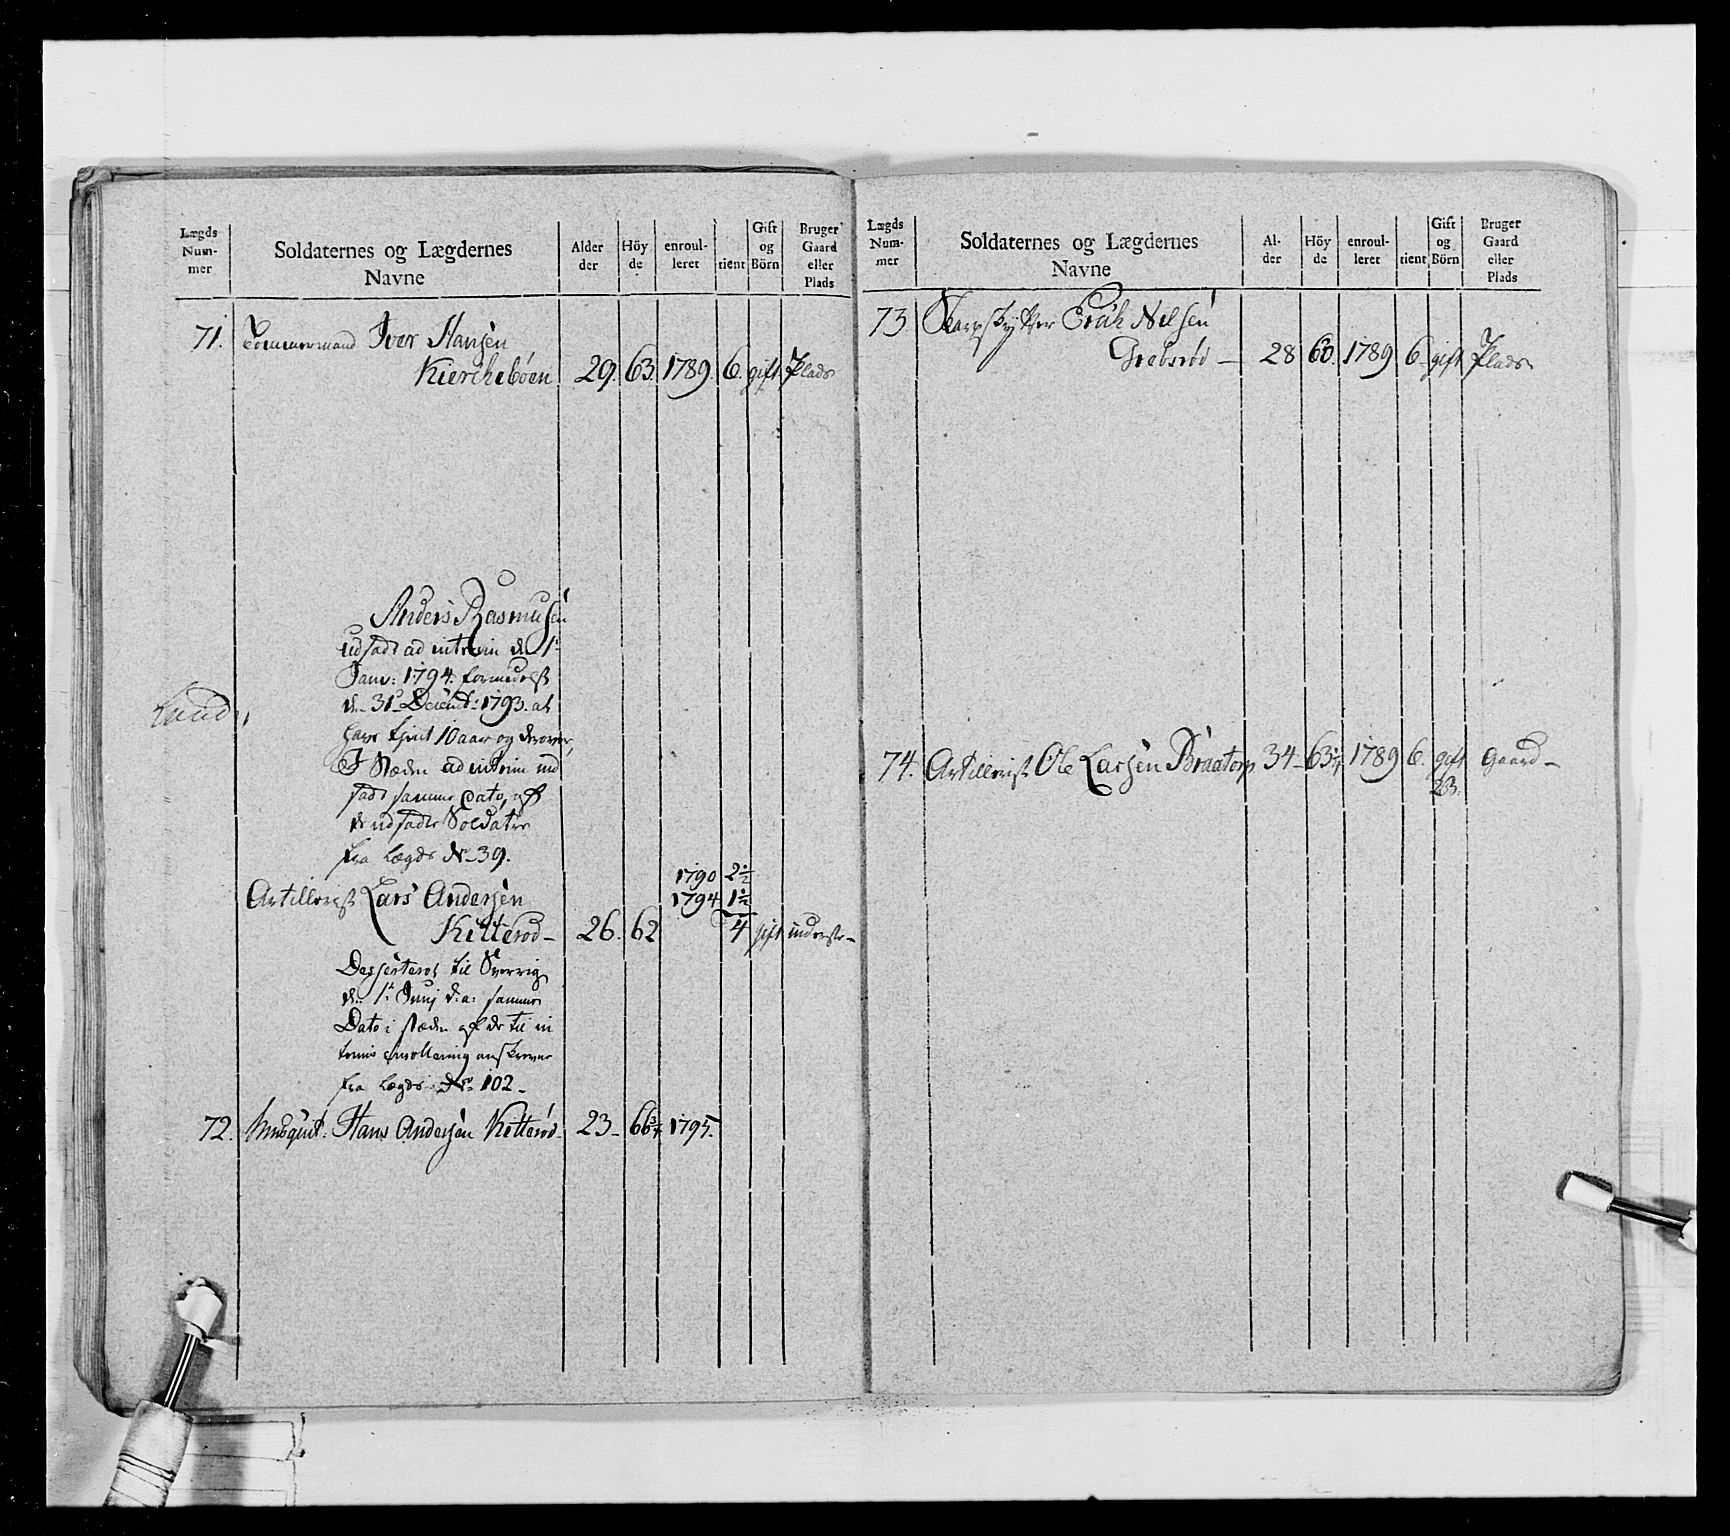 Lægds Num- mer
Soldaternes og Lægdernes Navne
Alder der
Höy de
enroul- leret
tient
Gift og Börn
Bruger Gaard eller Plads
71. Tömmermand Iver Hansen
Kierckebóen 29. 63. 1789. 6. gift Plads
Anders Rasmusen
udsadt ad interim den 1te
Janv: 1794. formedelst
den 31te Decembr: 1793. at
have tient 10 aar og derover,
I Stæden ad interim ind
sadt samme Dato, af
de udsadte Soldater
fra Lægds No 39.
1790 2 1/2
Artillerist Lars Andersen 1794 1 1/2
Kitterød 26. 62 4 gift inderste
Desserteret til Sverrig
den 1te Junj d: a: samme
Dato i stæden af de til in
terims enrollering anskrevne
fra Lægds No 102
72. Musqut: Hans Andersen Kitterød 23 66 3/4 1795.
Lund
Lægds Num- mer
Soldaternes og Lægdernes Navne
Al- der
Höy de
enroul- leret
tient
Gift og Börn
Bruger Gaard eller Plads
73 Skarpskytter Erich Nilsen
Grebsrød 28 60. 1789 6. gift Plads
74. Artillerist Ole Larsen Braatorp 34 63 1/4 1789 6. gift Gaard
2B.